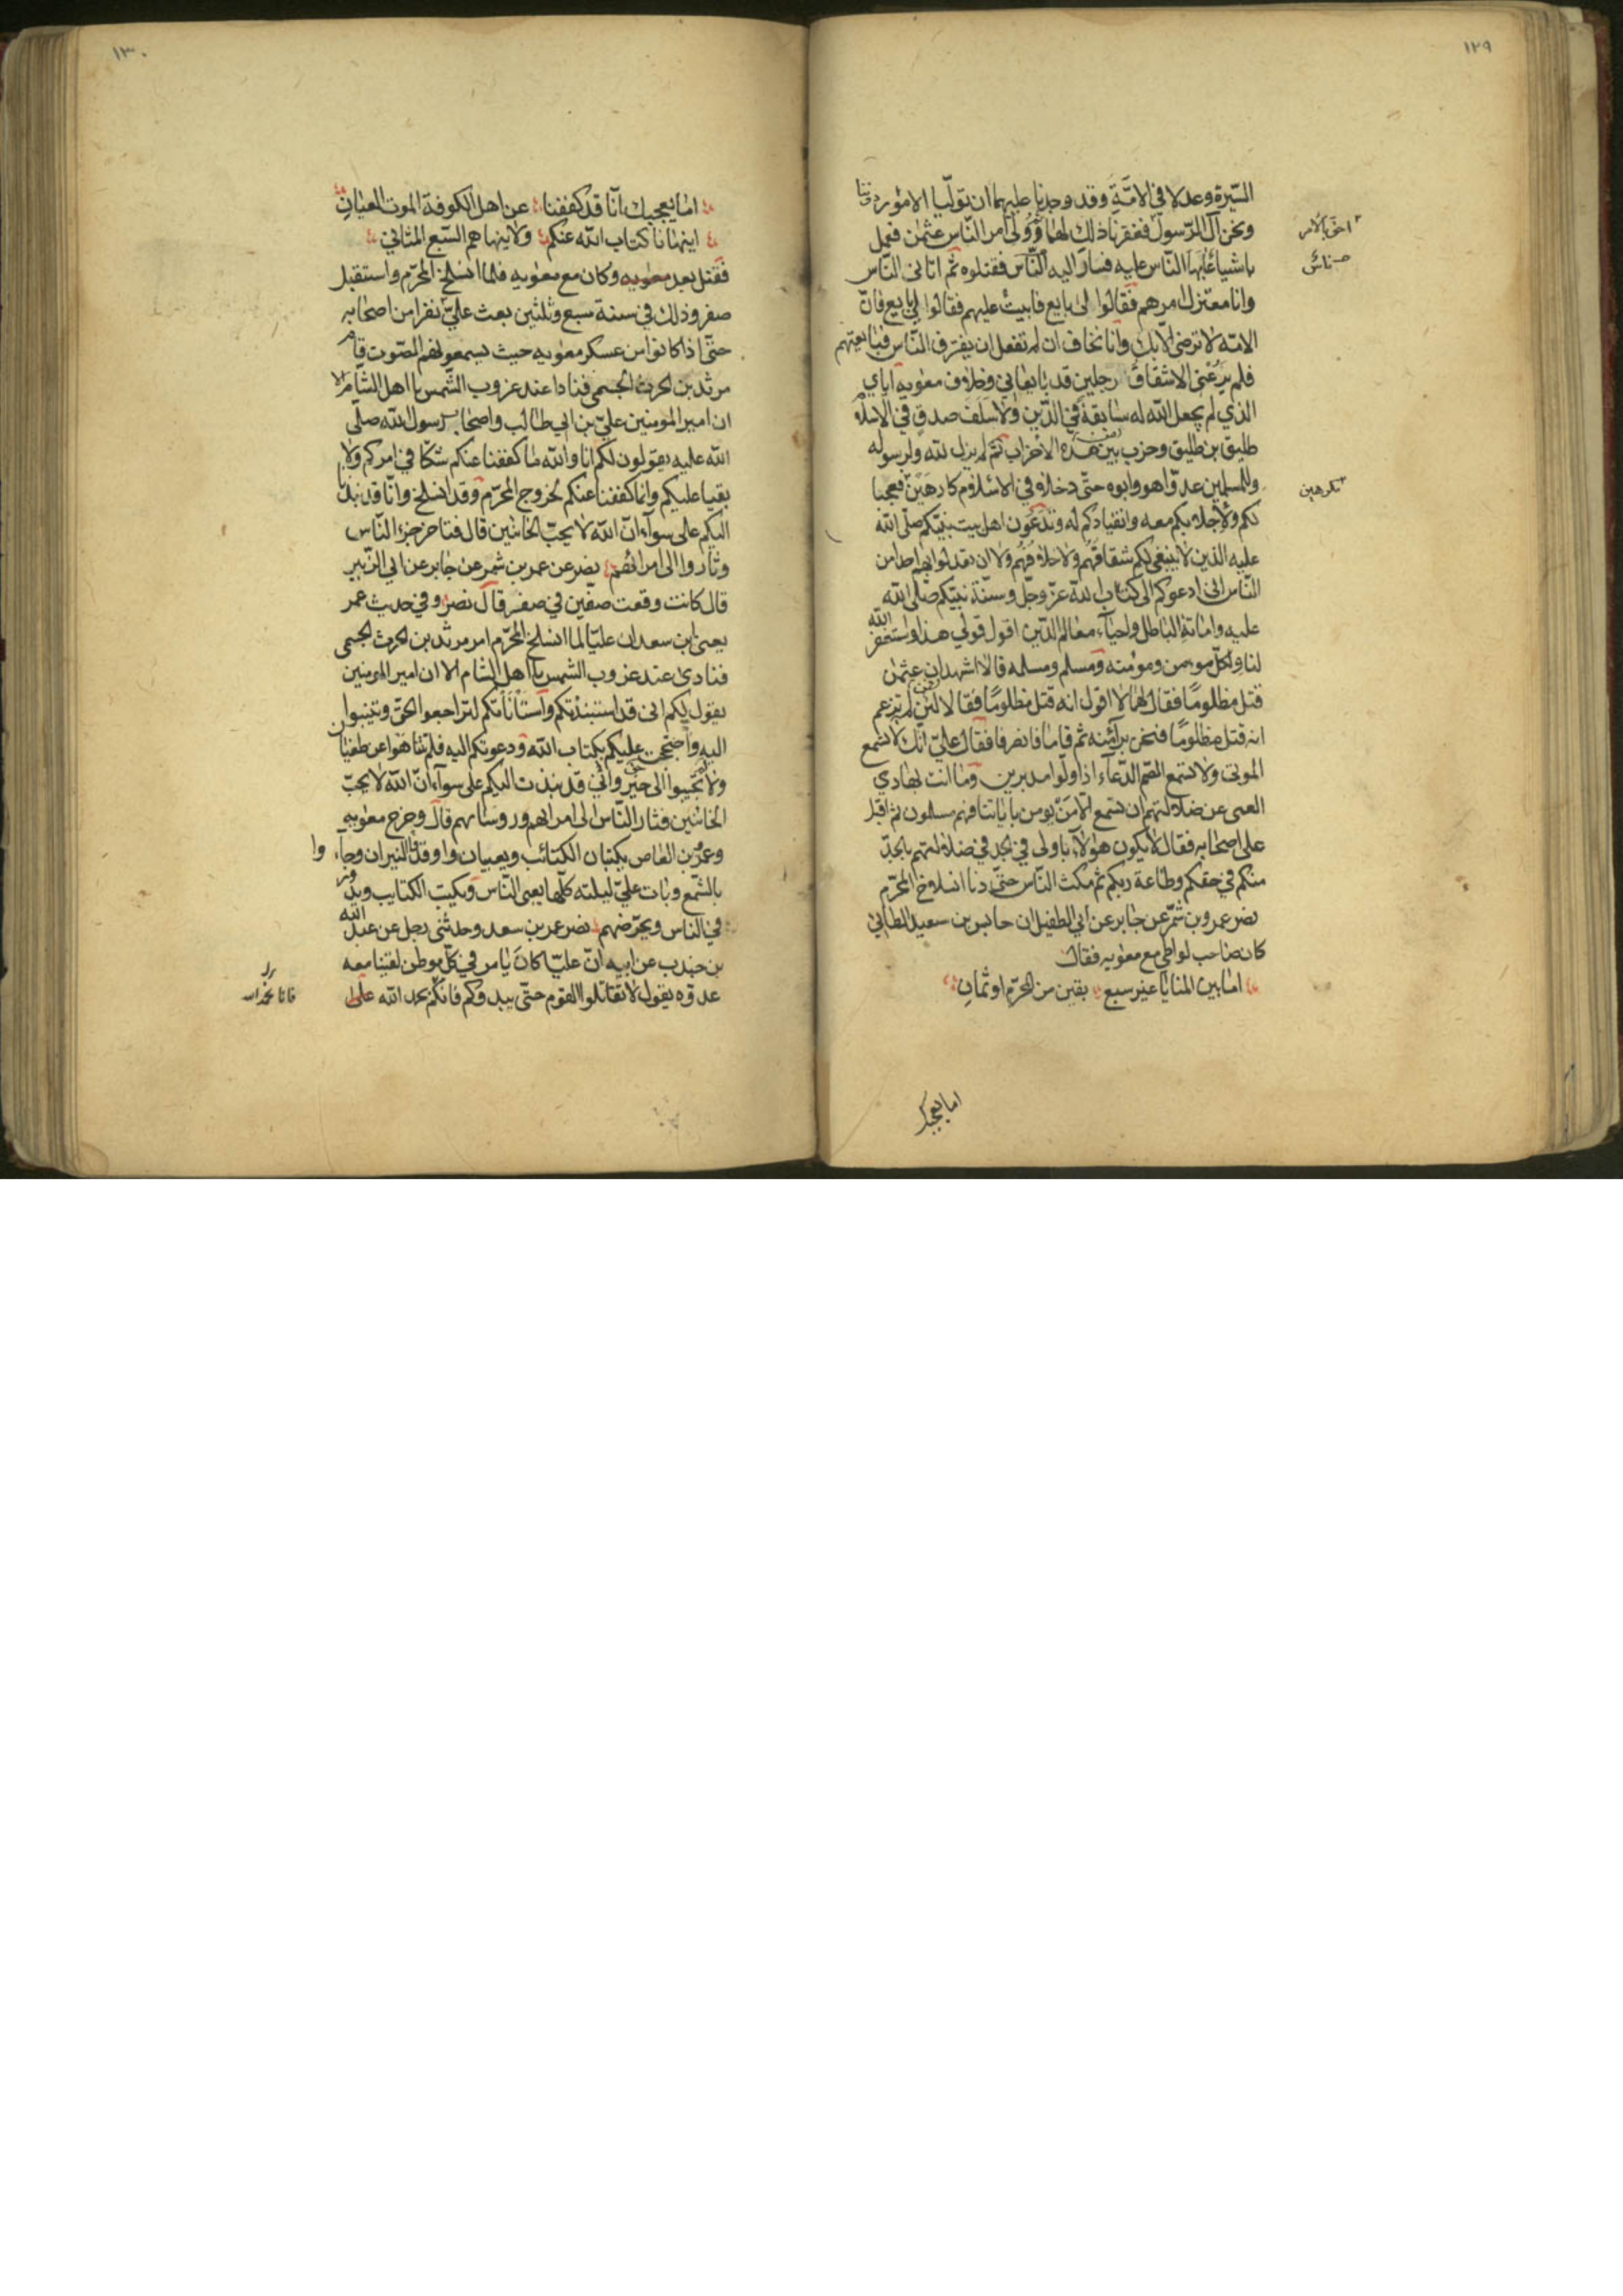 ١٢٩
السّيرة وعدلا في الامّة وقد وجدنا عليهما ان تولّيا الامور دوننا
ونحن آل الرّسول فغفرنا ذلك لهما ثم ولى امر النّاس عثمن فعمل
احق بالامر
باشياء عابها النّاس عليه فسار اليه النّاس فقتلوه ثم اتانى النّاس
ناس
وانا معتزل امرهم فقالوا لى بايع فابيت عليهم فقالوا لى بايع فانّ
الامّة لا ترضى الّا بك وانا نخاف ان لم تفعل ان يفترق النّاس فبايعتهم
فلم يرعنى الا شقاق رجلين قد بايعانى وخلاف معوية اياى
الذي لم يجعل اللّه له سابقة في الدّين ولا سلف صدق في الاسلام
طليق بن طليق وحزب من هذه الاحزاب لم يزل للّه ولرسوله
وللمسلمين عدوّا هو وابوه حتّى دخلا في الاسلام كارهين فعجبا
مكرهين
لكم ولاجلابكم معه وانقيادكم له وتدعون اهل بيت نبيّكم صلّى اللّه
عليه الذين لا ينبغى لكم شقاقهم ولا خلافهم ولا ان تعدلوا بهم احدا من
النّاس انى ادعوكم الى كتاب اللّه عزّ وجلّ وسنّة نبيّكم صلّى اللّه
عليه واماتة الباطل واحيآء معالم الدّين اقول قولى هذا واستغفر اللّه
لنا ولكلّ مومن ومومنة ومسلم ومسلمة فقالا اشهد ان عثمن
قتل مظلومًا فقال لهما لا اقول انه قتل مظلومًا فقالا فمن لم يزعم
انه قتل مظلومًا فنحن برآء منه ثم قاما فانصرفا فقال علىّ انّك لا تسمع
الموتى ولا تسمع الصّم الدّعآء اذا ولّوا مدبرين وما انت بهادي
العمى عن ضلالتهم ان تسمع الّا من يومن باياتنا فهم مسلمون ثم اقبل
على اصحابه فقال لا يكون هؤلآء باولى في الجد في ضلالتهم بالجدّ
منكم في حقكم وطاعة ربكم ثم مكث النّاس حتّى دنا انسلاخ المحرّم
نصر عمرو بن شمر عن جابر عن ابي الطفيل ان حابس بن سعيد الطائي
كان صاحب لوا طى مع معوية فقال
اما بين المنايا غير سبع بقين من المحرّم او ثمان
اما يعجبك
١٣٠
اما يعجبك انّا قد كففنا عن اهل الكوفة الموت العيان
اينهانا كتاب اللّه عنكم ولا ينهاهم السّبع المثاني
فقتل بعد وكان مع معوية فلما انسلخ المحرّم واستقبل
صفر وذلك في سنة سبع وثلثين بعث علىّ نفرا من اصحابه
حتّى اذا كانوا من عسكر معوية حيث يسمعونهم الصّوت قام
مرثد بن الحرث الجشمى فنادا عند غروب الشّمس يا اهل الشّام الا
ان امير المومنين علىّ بن ابي طالب واصحاب رسول اللّه صلّى
اللّه عليه يقولون لكم انا واللّه ما كففنا عنكم شكّا في امركم ولا
بقيا عليكم وانما كففنا عنكم لخروج المحرّم وقد انسلخ وانّا قد نبذنا
اليكم على سوآء انّ اللّه لا يحبّ الخائنين قال فتحاجز النّاس
وثاروا الى امرائهم نصر عن عمر بن شمر عن جابر عن ابي الزّبير
قال كانت وقعت صفّين في صفر قال نصر وفي حديث عمر
يعنى ابن سعد ان عليّا لما انسلخ المحرّم امر مرثد بن الحرث الجشمى
فنادى عند غروب الشمس يا اهل الشام الا ان امير المومنين
يقول لكم انى قد استنبذتكم واستأنأتكم لتراجعوا الحقّ وتنيبوا
اليه واحتججت عليكم بكتاب اللّه ودعوتكم اليه فلم تتناهوا عن طغيان
ولم تجيبوا الى حق وانّى قد نبذت اليكم على سوآء انّ اللّه لا يحبّ
الخائنين فثار النّاس الى امرائهم وروسائهم قال وخرج معوية
وعمرو بن العاص يكتبان الكتائب ويعبيان واوقدوا النيران وجآءوا
بالشّمع وبات علىّ ليلته كلّها يعبى النّاس ويكتب الكتايب ويدور
في الناس ويحرّضهم نصر عمر بن سعد وحدثنى رجل عن عبد اللّه
بن جندب عن ابيه انّ عليّا كان يامر في كلّ موطن لقينا معه
عدوّه يقول لا تقاتلوا القوم حتّى يبدوكم فانكم بحمد اللّه على